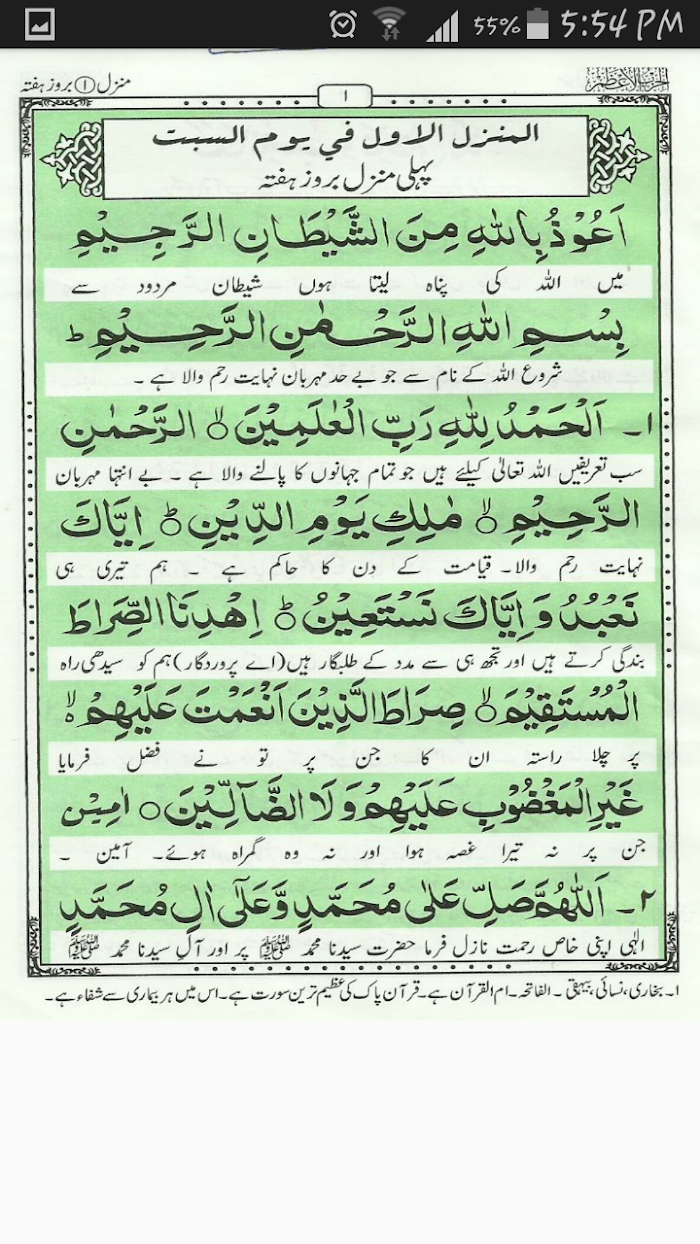 55% 5:54 PM
منزل ① بروز ہفتہ
الحزب الاعظم
١
المنزل الاول في يوم السبت
پہلی منزل بروز ہفتہ
اَعُوْذُ بِاللهِ مِنَ الشَّيْطَانِ الرَّجِيْمِ
میں اللہ کی پناہ لیتا ہوں شیطان مردود سے
بِسْمِ اللهِ الرَّحْمٰنِ الرَّحِيْمِ ط
شروع اللہ کے نام سے جو بے حد مہربان نہایت رحم والا ہے ۔
١۔ اَلْحَمْدُ لِلّٰهِ رَبِّ الْعٰلَمِيْنَ ۙ الرَّحْمٰنِ
سب تعریفیں اللہ تعالیٰ کیلئے ہیں جو تمام جہانوں کا پالنے والا ہے ۔ بے انتہا مہربان
الرَّحِيْمِ ۙ مٰلِكِ يَوْمِ الدِّيْنِ ؕ اِيَّاكَ
نہایت رحم والا۔ قیامت کے دن کا حاکم ہے ۔ ہم تیری ہی
نَعْبُدُ وَ اِيَّاكَ نَسْتَعِيْنُ ؕ اِهْدِنَا الصِّرَاطَ
بندگی کرتے ہیں اور تجھ ہی سے مدد کے طلبگار ہیں (اے پروردگار) ہم کو سیدھی راہ
الْمُسْتَقِيْمَ ۙ صِرَاطَ الَّذِيْنَ اَنْعَمْتَ عَلَيْهِمْ ۙ
پر چلا راستہ ان کا جن پر تو نے فضل فرمایا
غَيْرِ الْمَغْضُوْبِ عَلَيْهِمْ وَلَا الضَّآلِّيْنَ ○ اٰمِيْن
جن پر نہ تیرا غصہ ہوا اور نہ وہ گمراہ ہوئے۔ آمین ۔
٢۔ اَللّٰهُمَّ صَلِّ عَلٰى مُحَمَّدٍ وَّعَلٰٓى اٰلِ مُحَمَّدٍ
الٰہی اپنی خاص رحمت نازل فرما حضرت سیدنا محمد ﷺ پر اور آلِ سیدنا محمد ﷺ
١۔ بخاری، نسائی، بیہقی ۔ الفاتحہ۔ ام القرآن ہے۔ قرآن پاک کی عظیم ترین سورت ہے۔ اس میں ہر بیماری سے شفاء ہے۔